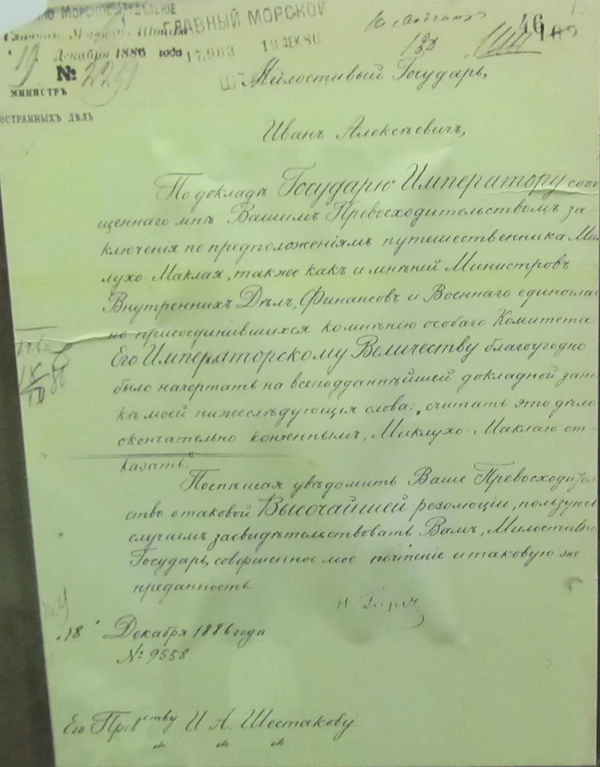 МОРСКОЕ ОТДѢЛЕНІЕ
Главнаго Морскаго Штаба
19 Декабря 1886 года
№ 2291
ГЛАВНЫЙ МОРСКОЙ
17,963 19 ДЕК 86
46
МИНИСТРЪ
ОСТРАННЫХЪ ДѢЛЪ
Милостивый Государь,
Иванъ Алексѣевичъ,
По докладѣ Государю Императору сооб
щеннаго мнѣ Вашимъ Превосходительствомъ за
ключенія по предположеніямъ путешественника Мик
лухо-Маклая, также какъ и мнѣній Министровъ
Внутреннихъ Дѣлъ, Финансовъ и Военнаго единоглас
но присоединившихся ко мнѣнію особаго Комитета
Его Императорскому Величеству благоугодно
было начертать на всеподданнѣйшей докладной запис
кѣ моей нижеслѣдующія слова: „считать это дѣло
окончательно конченнымъ, Миклухо-Маклаю от
казать."
Поспѣшая увѣдомить Ваше Превосходитель
ство о таковой Высочайшей резолюціи, пользуюсь
случаемъ засвидѣтельствовать Вамъ, Милостивый
Государь, совершенное мое почтеніе и таковую же
преданность.
Н Гирсъ
„18" Декабря 1886 года
№ 9558.
Его Прев-ству И А. Шестакову.